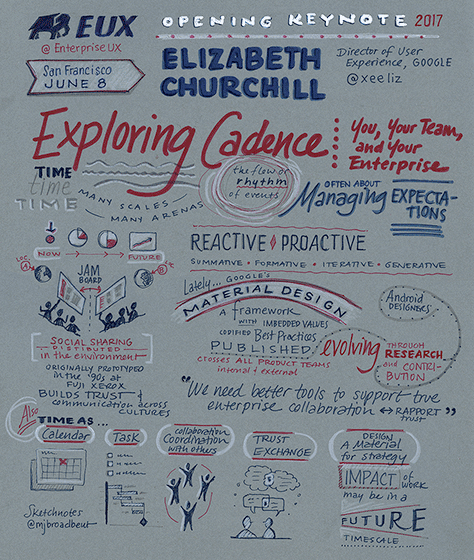 EUX
@ EnterpriseUX
OPENING KEYNOTE 2017
San Francisco
JUNE 8
ELIZABETH
CHURCHILL
Director of User
Experience, GOOGLE
@xeeliz
Exploring Cadence
You, Your Team,
and Your
Enterprise
TIME
time
TIME
MANY SCALES
MANY ARENAS
the flow or
rhythm
of events
OFTEN ABOUT
Managing EXPECTA-
TIONS
NOW
FUTURE
LOC
A
B
JAM
BOARD
REACTIVE PROACTIVE
SUMMATIVE • FORMATIVE • ITERATIVE • GENERATIVE
Lately... GOOGLE'S
MATERIAL DESIGN
A framework
WITH IMBEDDED VALUES
CODIFIED Best Practices
PUBLISHED
CROSSES ALL PRODUCT TEAMS
internal & external
Android
DESIGNERS
evolving
THROUGH
RESEARCH
and CONTRI-
BUTION
SOCIAL SHARING
DISTRIBUTED
in the environment
ORIGINALLY PROTOTYPED
IN THE '90s AT
FUJI XEROX
BUILDS TRUST &
communication across
CULTURES
"We need better tools to support true
enterprise collaboration ↔ RAPPORT"
trust
Also
TIME AS...
Calendar
Task
collaboration
Coordination
with others
TRUST
EXCHANGE
DESIGN
A Material
for strategy
IMPACT of
WORK
may be in a
FUTURE
TIMESCALE
Sketchnotes
@mjbroadbent